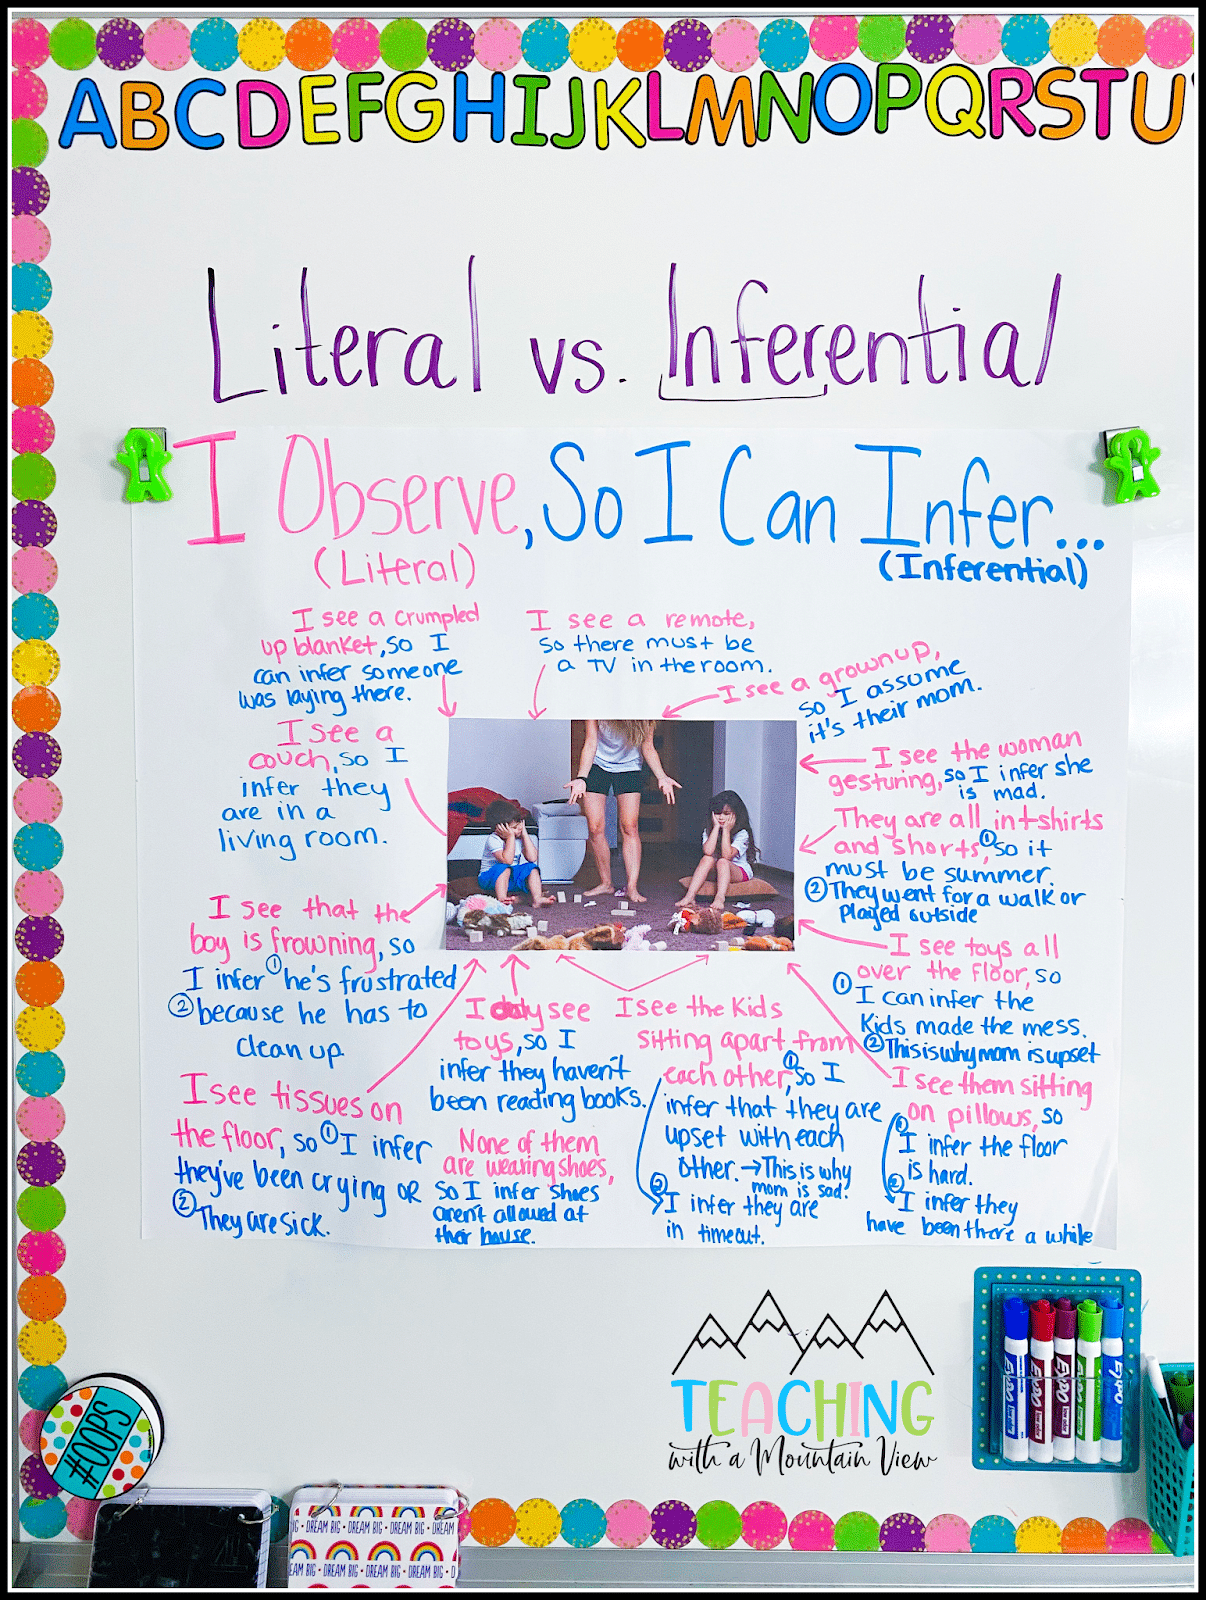 ABCDEFGHIJKLMNOPQRSTU
Literal vs. Inferential
I Observe, So I Can Infer...
(Literal)
(Inferential)
I see a crumpled
up blanket, so I
can infer someone
was laying there.
I see a remote,
so there must be
a TV in the room.
I see a grownup,
so I assume
it's their mom.
I see a
couch, so I
infer they
are in a
living room.
I see the woman
gesturing, so I infer she
is mad.
They are all in t-shirts
and shorts, ① so it
must be summer.
② They went for a walk or
played outside
I see that the
boy is frowning, so
I infer ① he's frustrated
② because he has to
clean up.
I see toys all
over the floor, so
① I can infer the
kids made the mess.
② This is why mom is upset
I see tissues on
the floor, so ① I infer
they've been crying or
② They are sick.
I only see
toys, so I
infer they haven't
been reading books.
None of them
are wearing shoes,
so I infer shoes
aren't allowed at
their house.
I see the kids
sitting apart from
each other, ① so I
infer that they are
upset with each
other. → This is why
mom is sad.
② I infer they are
in timeout.
I see them sitting
on pillows, so
① I infer the floor
is hard.
② I infer they
have been there a while
TEACHING
with a Mountain View
EXPO
EXPO
EXPO
EXPO
EXPO
#OOPS
BIG • DREAM BIG • DREAM BIG • DREAM BIG
DREAM BIG • DREAM BIG • DREAM BIG • D